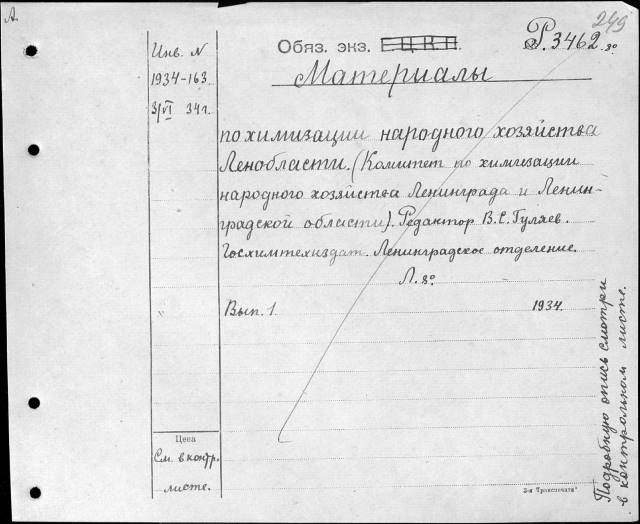 А.
249
Инв. N
1934-163
3/VI 34 г.
Обяз. экз. Г.Ц.К.П.
Р. 3462. 30
Материалы
по химизации народного хозяйства
Ленобласти. (Комитет по химизации
народного хозяйства Ленинграда и Ленин-
градской области). Редактор В.С. Гуляев.
Госхимтехиздат. Ленинградское отделение.
Л. 8º
Вып. 1. 1934.
Цена
См. в контр.
листе.
Подробную опись смотри
в контрольном листе.